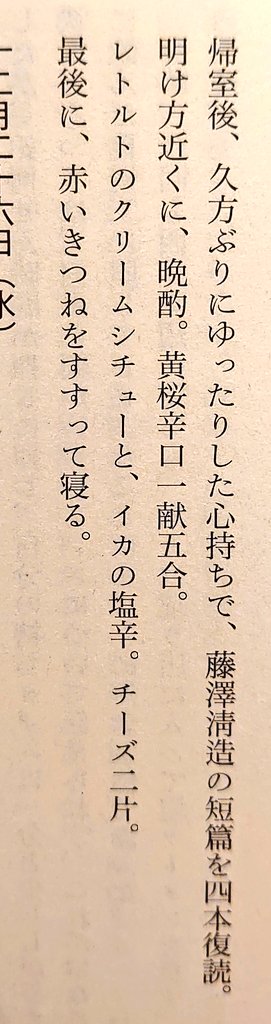 帰室後、久方ぶりにゆったりした心持ちで、藤澤淸造の短篇を四本復読。
明け方近くに、晩酌。黄桜辛口一献五合。
レトルトのクリームシチューと、イカの塩辛。チーズ二片。
最後に、赤いきつねをすすって寝る。
十二月二十六日（水）